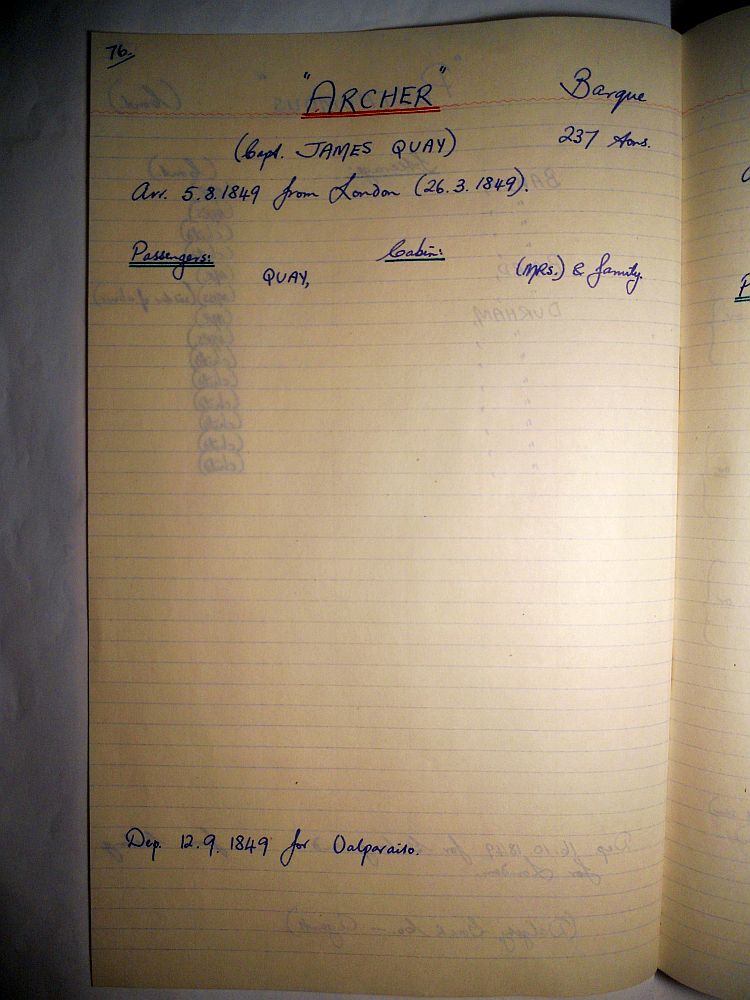 76.
"ARCHER" Barque
(Capt. JAMES QUAY) 237 tons.
Arr. 5.8.1849 from London (26.3.1849).
Passengers: Cabin:
QUAY, (MRS.) & family.
Dep. 12.9.1849 for Valparaiso.